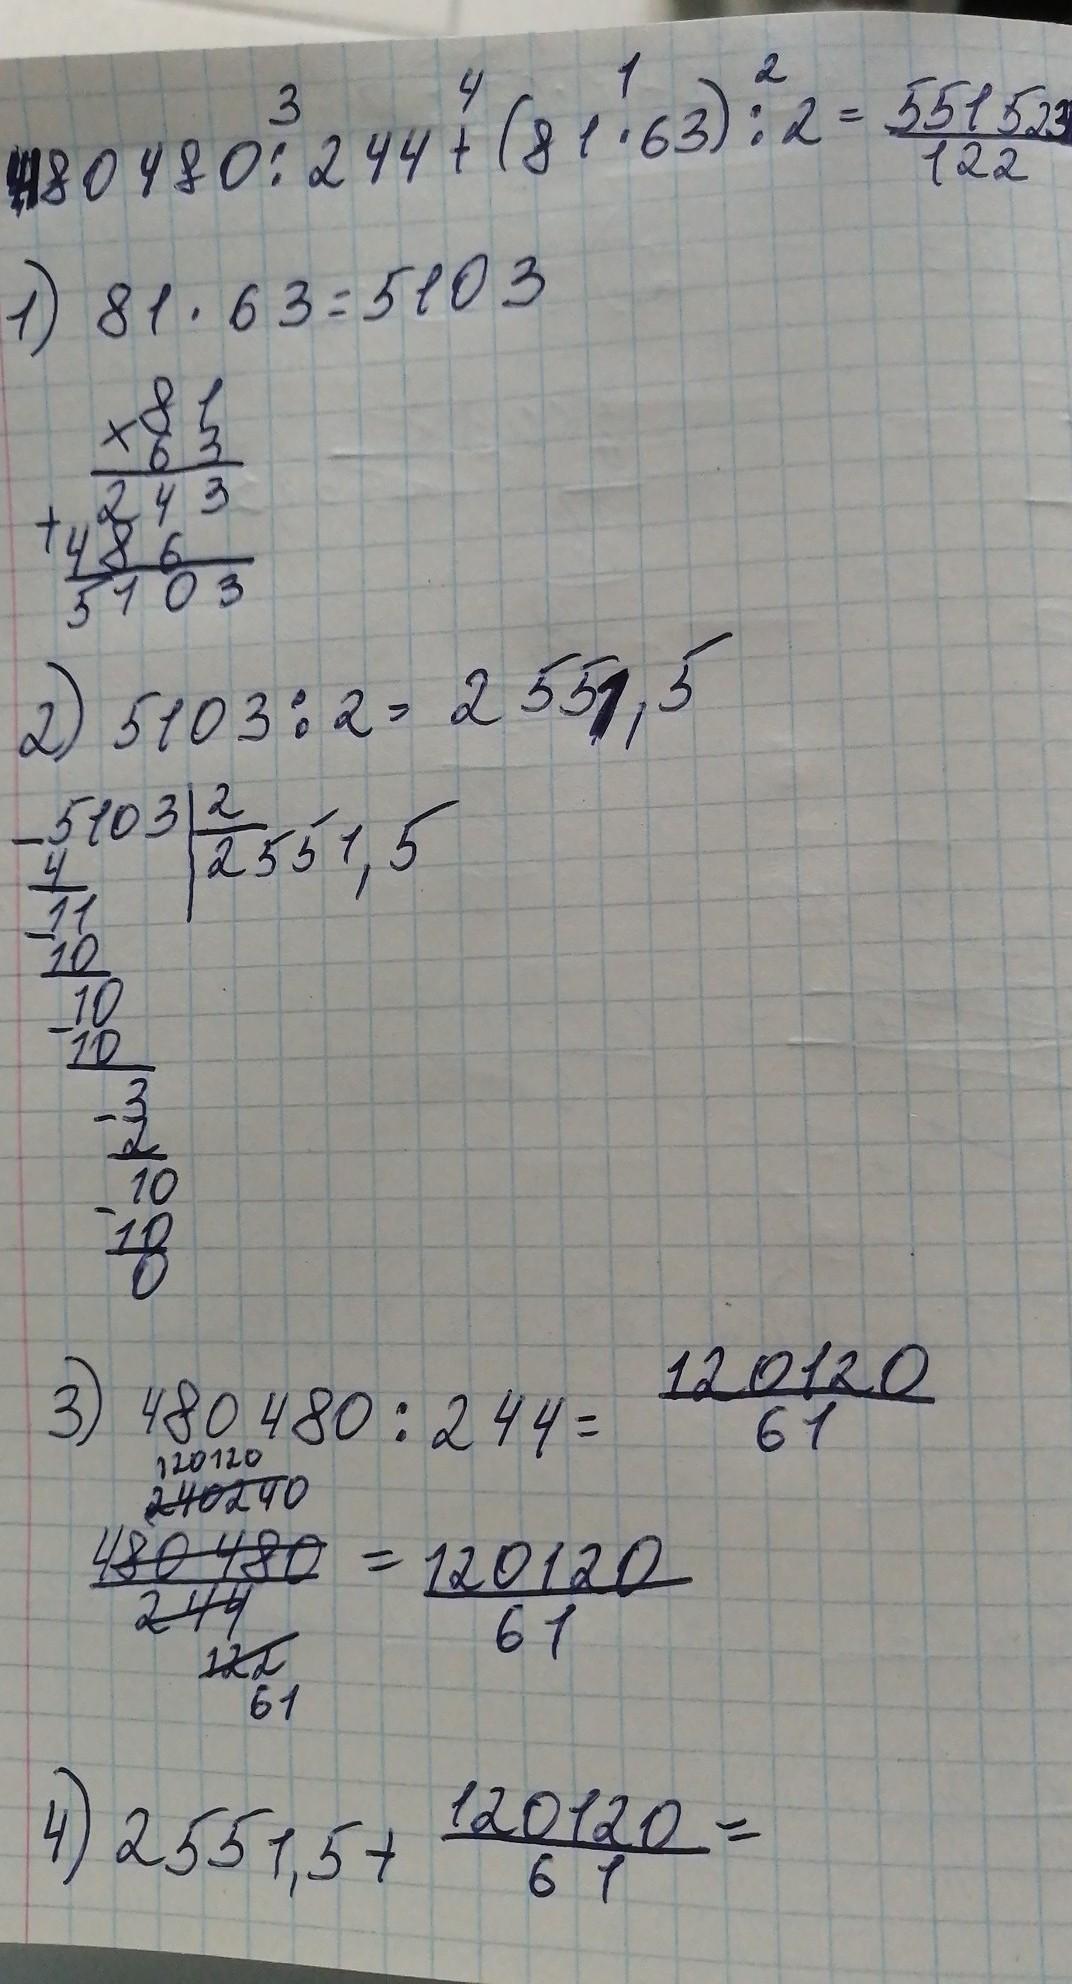 3 4 1 2
480480:244+(81·63):2= 551523
122
1) 81·63=5103
×81
63
243
+486
5103
2) 5103:2= 2551,5
-5103|2
4 2551,5
-11
10
-10
10
-3
2
-10
10
0
3) 480480:244= 120120
61
120120
240240
480480 = 120120
244 61
122
61
4) 2551,5+ 120120 =
61